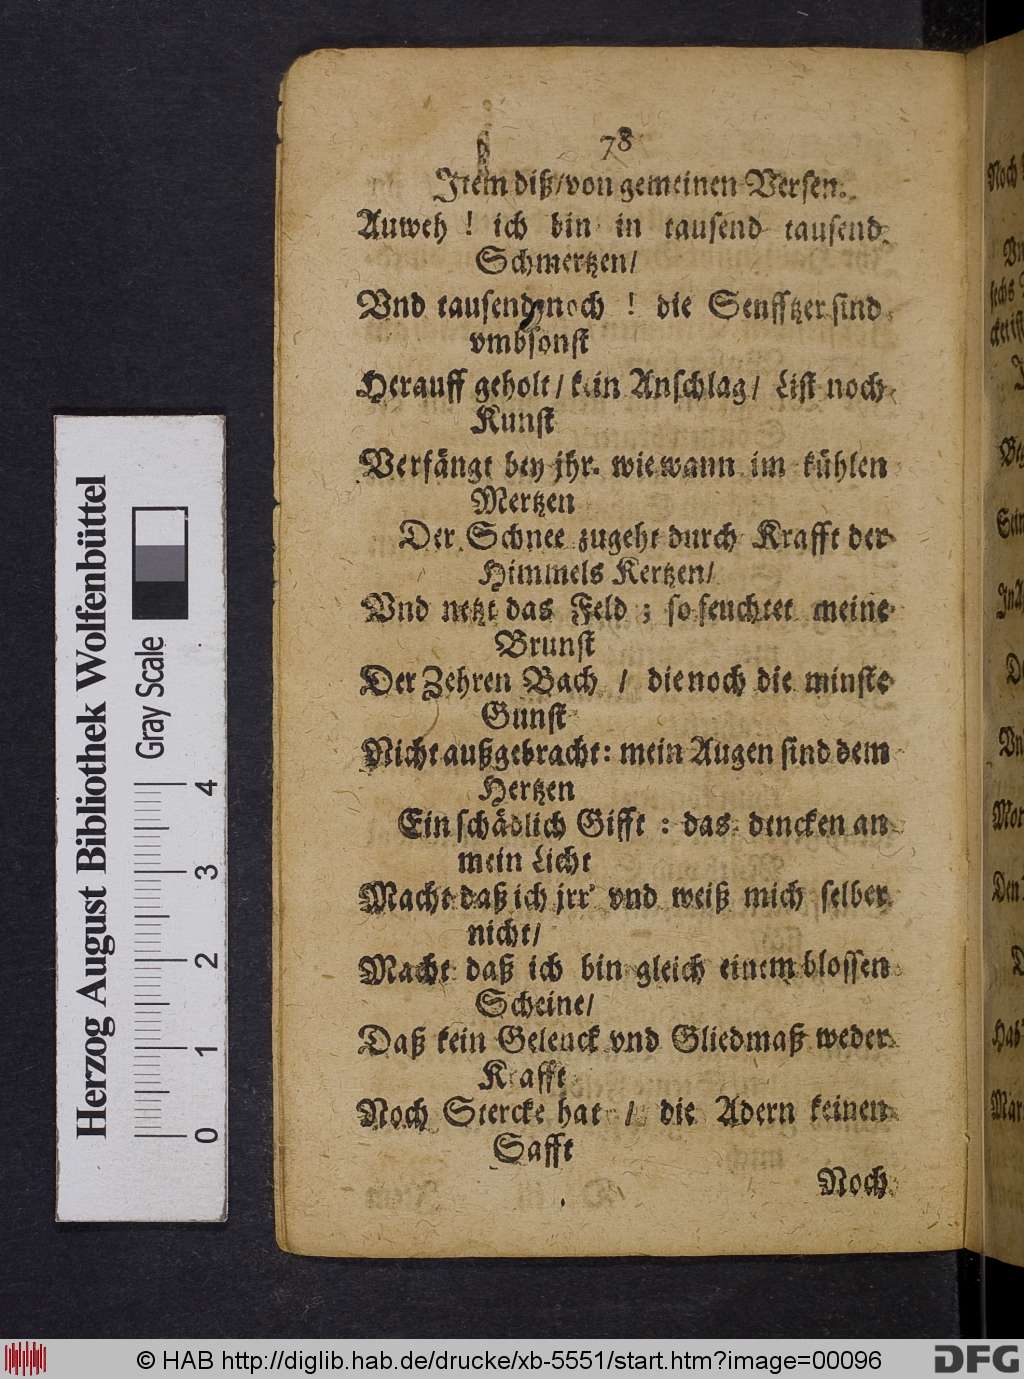 78
Item diß/von gemeinen Versen.
Auweh ! ich bin in tausend tausend
Schmertzen/
Vnd tausend noch ! die Seufftzer sind
vmbsonst
Herauff geholt / kein Anschlag / List noch
Kunst
Verfängt bey jhr. wie wann im kühlen
Mertzen
Der Schnee zugeht durch Krafft der
Himmels Kertzen/
Vnd netzt das Feld ; so feuchtet meine
Brunst
Der Zehren Bach / die noch die minste
Gunst
Nicht außgebracht: mein Augen sind dem
Hertzen
Ein schädlich Gifft : das dencken an
mein Liecht
Macht daß ich jrr' vnd weiß mich selber
nicht/
Macht daß ich bin gleich einem blossen
Scheine/
Daß kein Gelenck vnd Gliedmaß weder
Krafft
Noch Stercke hat / die Adern keinen
Safft
Noch
Noch
Herzog August Bibliothek Wolfenbüttel
Gray Scale
0 1 2 3 4
© HAB http://diglib.hab.de/drucke/xb-5551/start.htm?image=00096
DFG